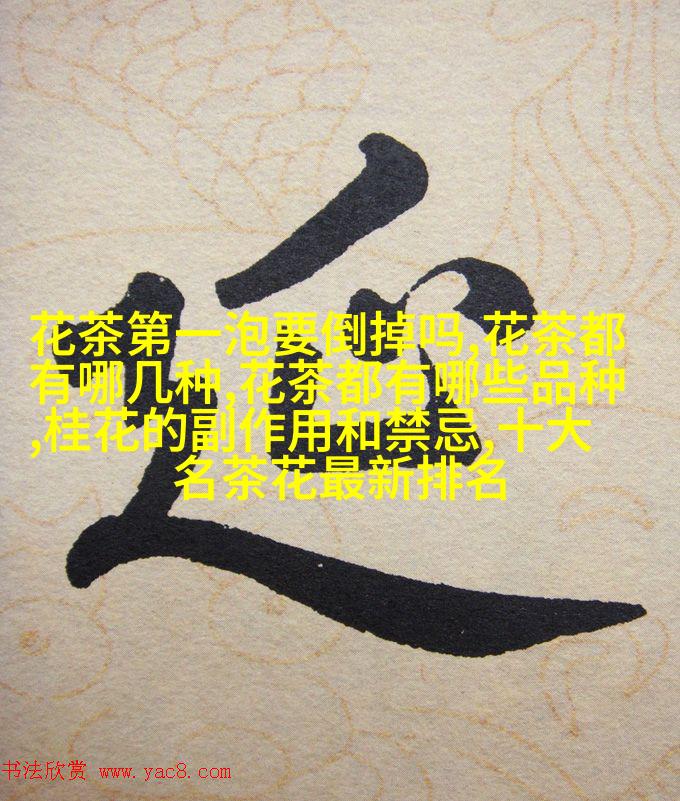 花茶第一泡要倒掉吗,花茶都
有哪几种,花茶都有哪些品种
,桂花的副作用和禁忌,十大
名茶花最新排名
书法欣赏 www.yac8.com